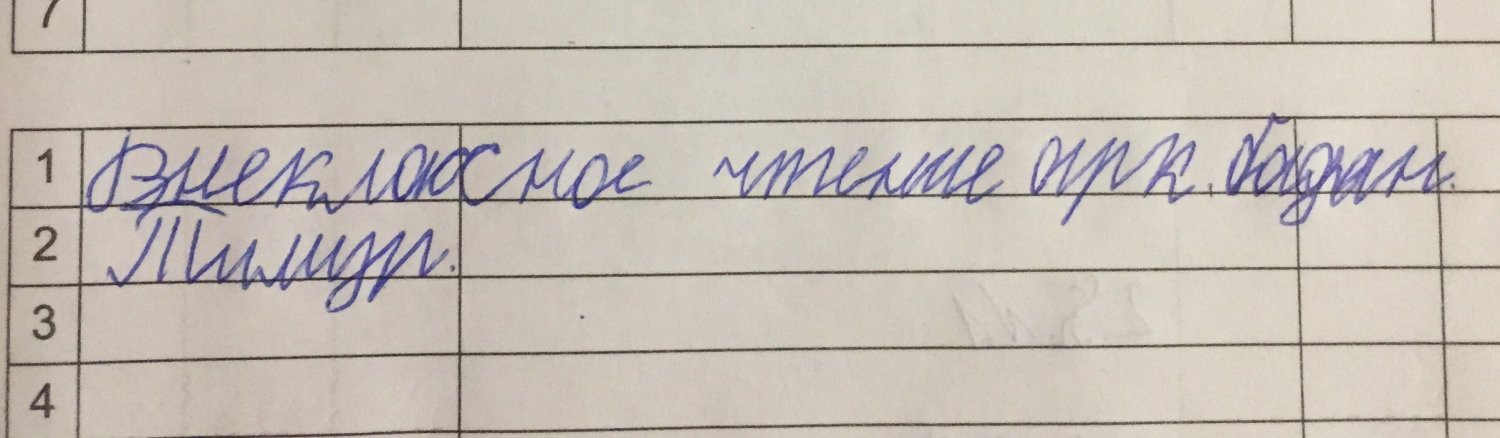 7
1 Внекласное чтение арк. бадан.
2 Тимур.
3
4